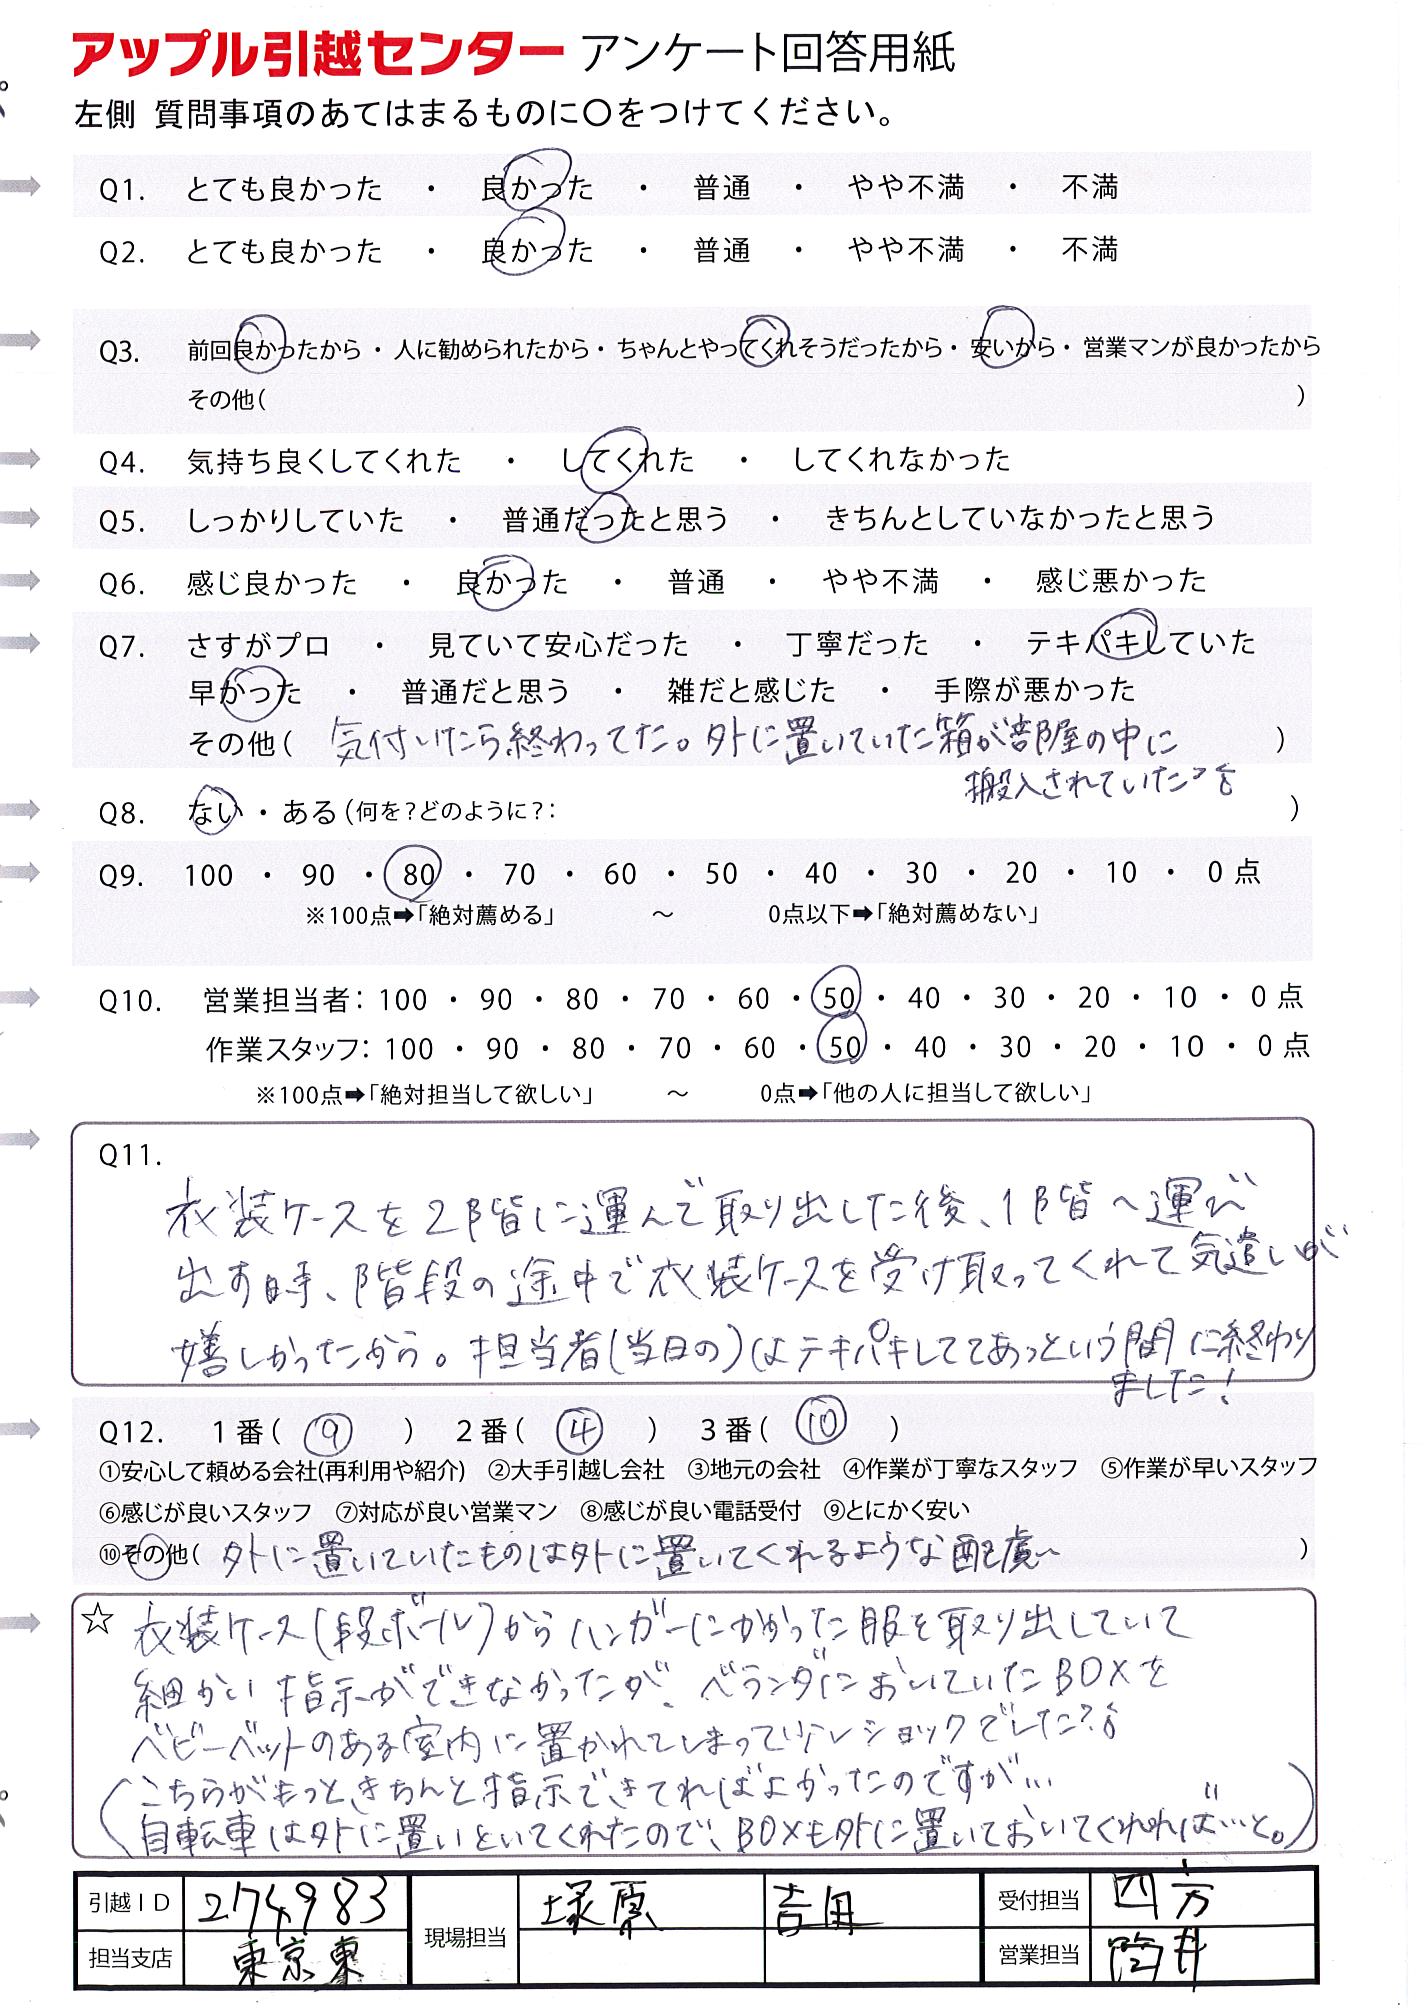 アップル引越センター アンケート回答用紙
左側 質問事項のあてはまるものに〇をつけてください。
Q1. とても良かった ・ 良かった ・ 普通 ・ やや不満 ・ 不満
Q2. とても良かった ・ 良かった ・ 普通 ・ やや不満 ・ 不満
Q3. 前回良かったから・ 人に勧められたから・ ちゃんとやってくれそうだったから・ 安いから・ 営業マンが良かったから
その他( )
Q4. 気持ち良くしてくれた ・ してくれた ・ してくれなかった
Q5. しっかりしていた ・ 普通だったと思う ・ きちんとしていなかったと思う
Q6. 感じ良かった ・ 良かった ・ 普通 ・ やや不満 ・ 感じ悪かった
Q7. さすがプロ ・ 見ていて安心だった ・ 丁寧だった ・ テキパキしていた
早かった ・ 普通だと思う ・ 雑だと感じた ・ 手際が悪かった
その他( 気付いたら終わってた。外に置いていた箱が部屋の中に )
搬入されていた
Q8. ない ・ ある (何を?どのように?: )
Q9. 100 ・ 90 ・ 80 ・ 70 ・ 60 ・ 50 ・ 40 ・ 30 ・ 20 ・ 10 ・ 0 点
※100点➡「絶対薦める」 ～ 0点以下➡「絶対薦めない」
Q10. 営業担当者: 100 ・ 90 ・ 80 ・ 70 ・ 60 ・ 50 ・ 40 ・ 30 ・ 20 ・ 10 ・ 0 点
作業スタッフ: 100 ・ 90 ・ 80 ・ 70 ・ 60 ・ 50 ・ 40 ・ 30 ・ 20 ・ 10 ・ 0 点
※100点➡「絶対担当して欲しい」 ～ 0点➡「他の人に担当して欲しい」
Q11.
衣装ケースを2階に運んで取り出した後、1階へ運び
出す時、階段の途中で衣装ケースを受け取ってくれて気遣いが
嬉しかったから。担当者(当日の)はテキパキしててあっという間に終わり
ました!
Q12. 1番( ⑨ ) 2番( ④ ) 3番( ⑩ )
①安心して頼める会社(再利用や紹介) ②大手引越し会社 ③地元の会社 ④作業が丁寧なスタッフ ⑤作業が早いスタッフ
⑥感じが良いスタッフ ⑦対応が良い営業マン ⑧感じが良い電話受付 ⑨とにかく安い
⑩その他( 外に置いていたものは外に置いてくれるような配慮 )
☆ 衣装ケース(段ボール)からハンガーにかかった服を取り出していて
細かい指示ができなかったが、ベランダにおいていたBOXを
ベビーベットのある室内に置かれてしまって少しショックでした
(こちらがもっときちんと指示できてればよかったのですが…
自転車は外に置いといてくれたので、BOXも外に置いておいてくれれば…と。)
引越ID 274983 現場担当 塚原 吉田 受付担当 四方
担当支店 東京東 営業担当 筒井